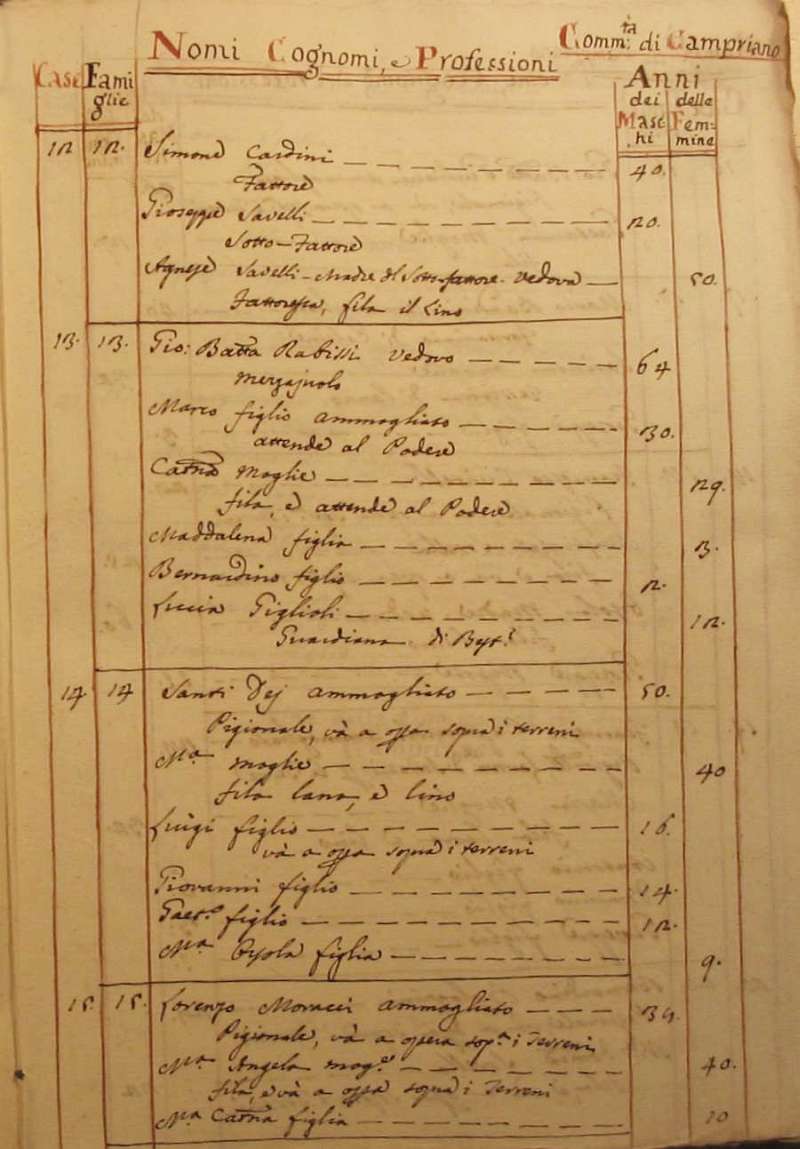 Comm:tà di Campriano
Nomi Cognomi, e Professioni
Case Fami glie
Anni
dei Maschi delle Femmine
12 12. Simone Cardini 40.
Fattore
Gioseppe Savelli 20.
Sotto-Fattore
Agnese Savelli-Madre del Sotto-fattore-vedova 50.
Fattoressa, fila il Lino
13. 13. Gio: Batta Vedovo 64
Mezzajuolo
Marco figlio ammogliato 30.
attende al Podere
Cattna Moglie 29.
fila, e attende al Podere
Maddalena figlia 3.
Bernardino figlio 2.
Lucia Giglioli 12.
Guardiana di Best:
14 14 Santi Dej ammogliato 50.
Pigionale, và a opra sopra i terreni
Ma moglie 40
fila lana, e lino
Luigi figlio 16.
và a opra sopra i terreni
Giovanni figlio 14.
Gaet.o figlio 12.
Ma Orsola figlia 9.
15. 15. Lorenzo Moracci ammogliato 39.
Pigionale, và a opera sop.a i Terreni
Ma Angela mog.e 40.
fila, e và a opra sopra i Terreni
Ma Cattna figlia 10